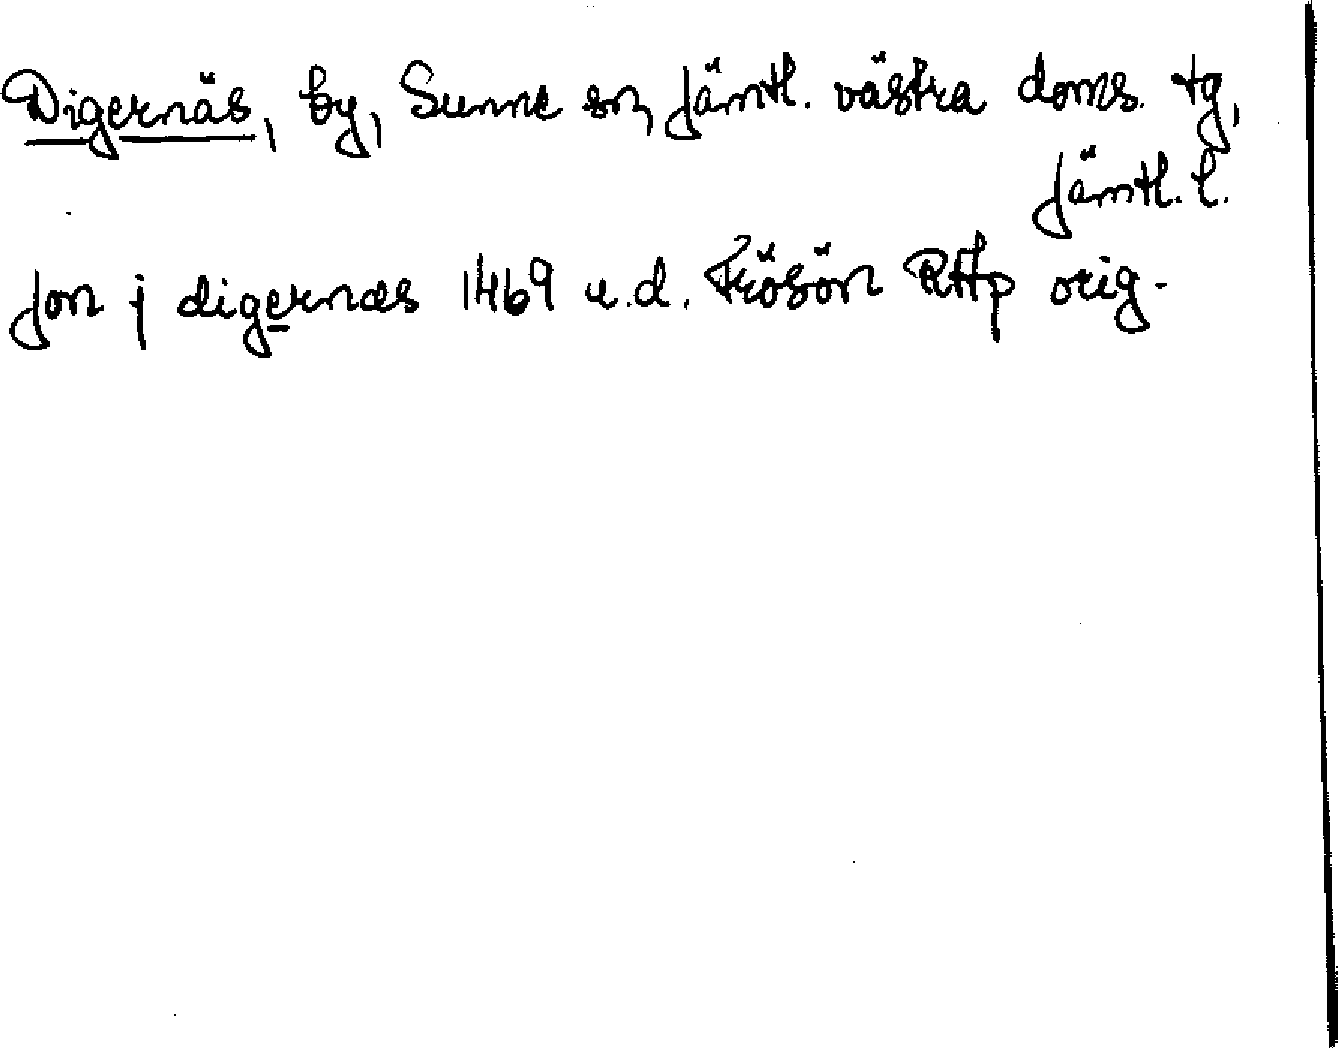 Digernäs, by, Sunne sn, Jämtl. västra doms. tg,
Jämtl. l.
Jon j digernæs 1469 u.d. Frösön RAp orig.